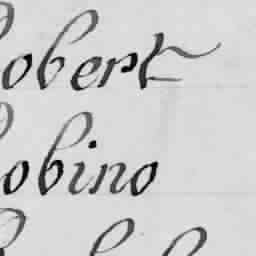 obert
obino